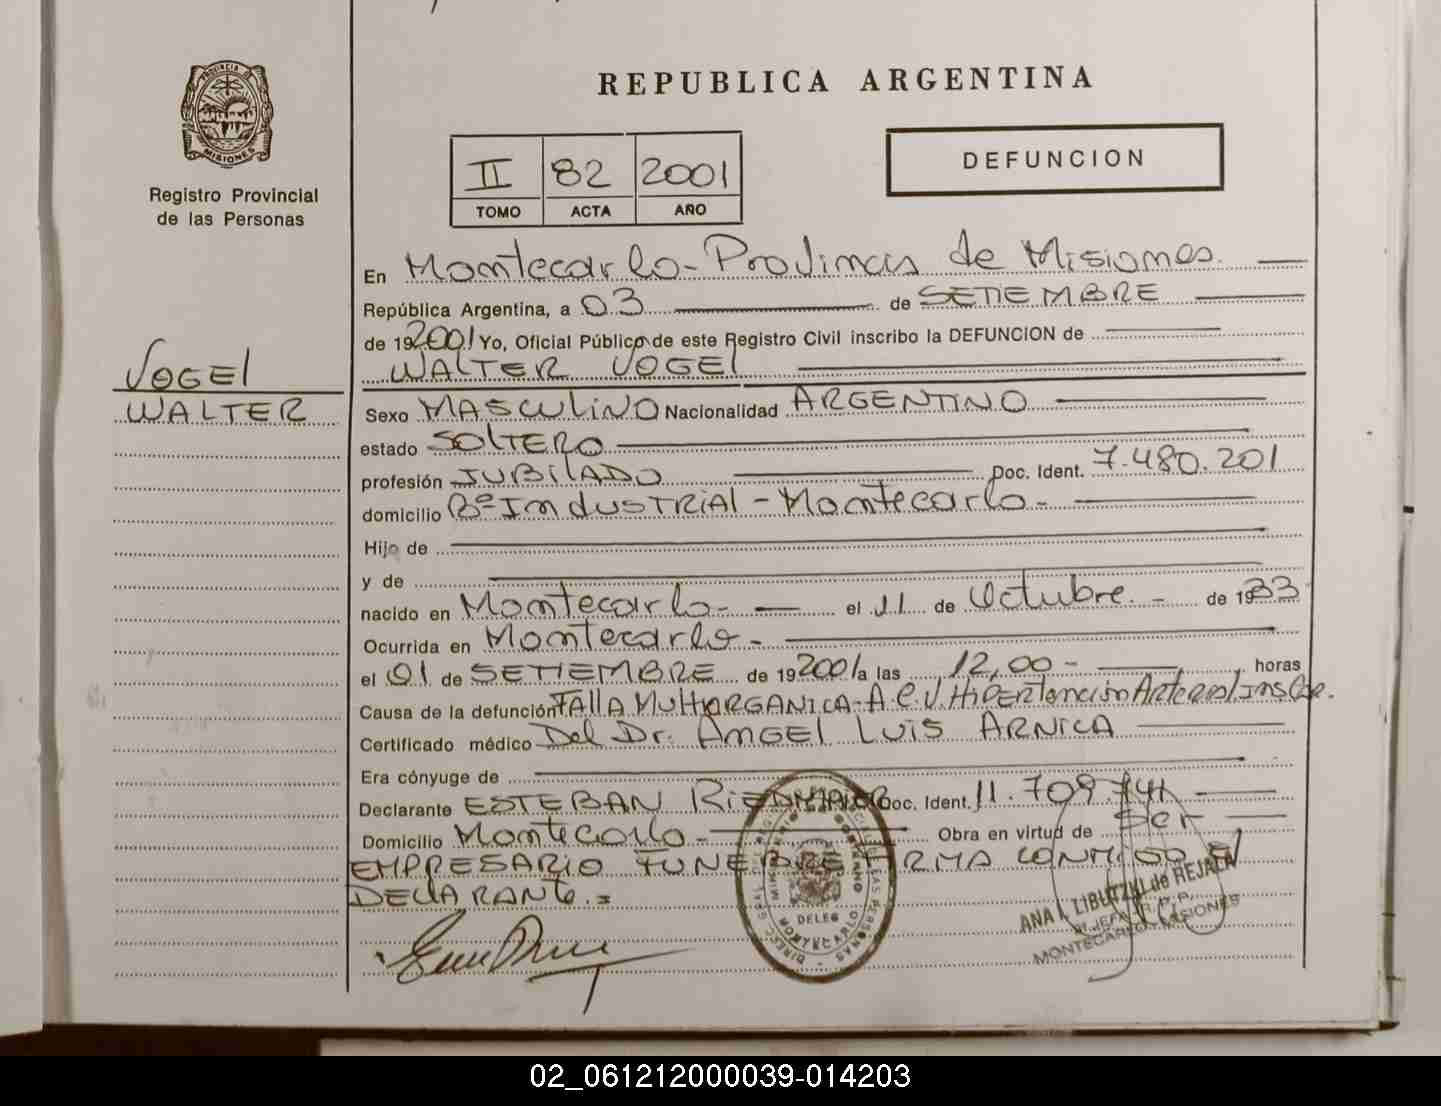 PROVINCIA DE
MISIONES
Registro Provincial
de las Personas
VOGEL
WALTER
REPUBLICA ARGENTINA
II 82 2001
TOMO ACTA AÑO
DEFUNCION
En Montecarlo - Provincia de Misiones.
República Argentina, a 03 de SETIEMBRE
de 192001 Yo, Oficial Público de este Registro Civil inscribo la DEFUNCION de
WALTER VOGEL
Sexo MASCULINO Nacionalidad ARGENTINO
estado SOLTERO
profesión JUBILADO Doc. Ident. 7.480.201
domicilio Bº INDUSTRIAL - Montecarlo -
Hijo de
y de
nacido en Montecarlo - el 11 de Octubre. - de 1933
Ocurrida en Montecarlo -
el 01 de SETIEMBRE de 192001 a las 12,00 - horas
Causa de la defunción FALLA MULTIORGANICA - A.C.V. HIPERTENCION Arterial Ins Car.
Certificado médico Del Dr. ANGEL LUIS ARNICA
Era cónyuge de
Declarante ESTEBAN RIEDMAIER Doc. Ident. 11.709.741
Domicilio Montecarlo - Obra en virtud de Ser
EMPRESARIO FUNEBRE FIRMA CONMIGO El
DECLARANTE. =
DELEG
MONTECARLO
ANA I. LIBUTZKI de REJALA
JEFA R.P.P.
MONTECARLO - MISIONES
02_061212000039-014203